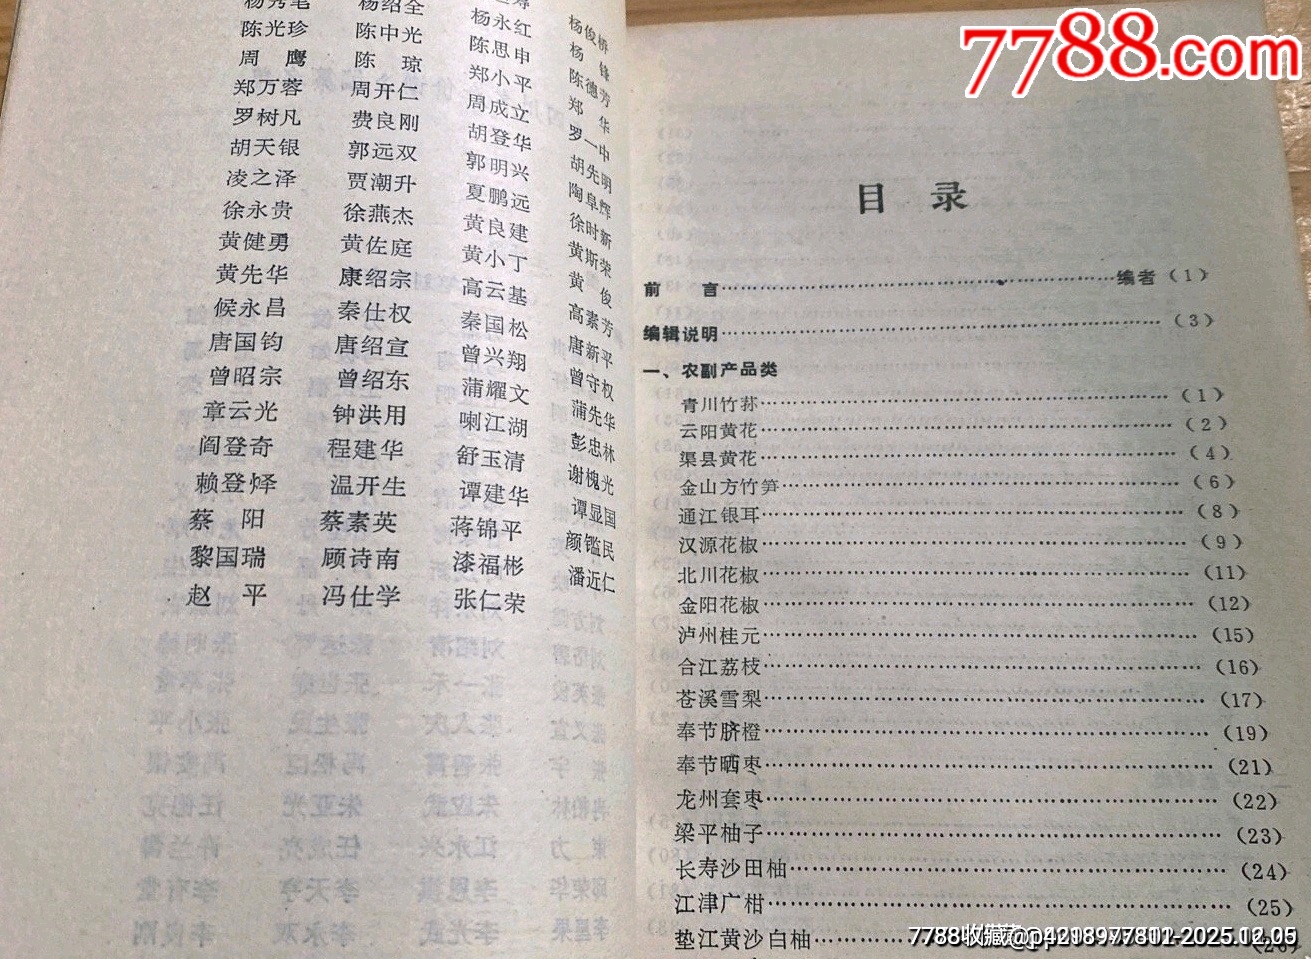 7788.com
杨秀笔 杨绍全
陈光珍 陈中光 杨永红 杨俊桥
周 鹰 陈 琼 陈思申 杨 锋
郑万蓉 周开仁 郑小平 陈德芳
罗树凡 费良刚 周成立 郑 华
胡天银 郭远双 胡登华 罗一中
凌之泽 贾潮升 郭明兴 胡先明
徐永贵 徐燕杰 夏鹏远 陶阜辉
黄健勇 黄佐庭 黄良建 徐时新
黄先华 康绍宗 黄小丁 黄斯荣
候永昌 秦仕权 高云基 黄 俊
唐国钧 唐绍宣 秦国松 高素芳
曾昭宗 曾绍东 曾兴翔 唐新平
章云光 钟洪用 蒲耀文 曾守权
阎登奇 程建华 喇江湖 蒲先华
赖登烽 温开生 舒玉清 彭忠林
蔡 阳 蔡素英 谭建华 谢槐光
黎国瑞 顾诗南 蒋锦平 谭显国
赵 平 冯仕学 漆福彬 颜鑑民
张仁荣 潘近仁
目 录
前 言……编者（1）
编辑说明……（3）
一、农副产品类
青川竹荪……（1）
云阳黄花……（2）
渠县黄花……（4）
金山方竹笋……（6）
通江银耳……（8）
汉源花椒……（9）
北川花椒……（11）
金阳花椒……（12）
泸州桂元……（15）
合江荔枝……（16）
苍溪雪梨……（17）
奉节脐橙……（19）
奉节晒枣……（21）
龙州套枣……（22）
梁平柚子……（23）
长寿沙田柚……（24）
江津广柑……（25）
垫江黄沙白柚……（26）
7788收藏@p4218977801-2025.12.05